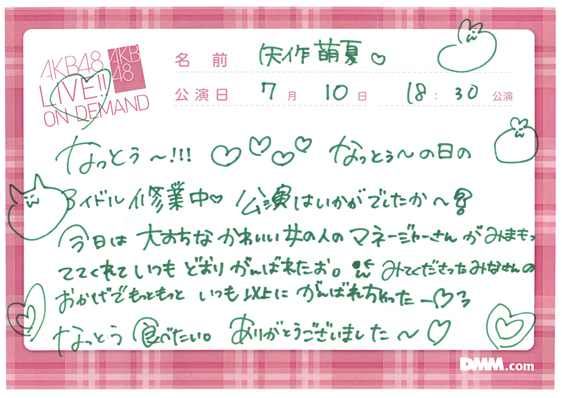 AKB48
LIVE!!
ON DEMAND
AKB
48
名前 矢作萌夏♡
公演日 7月10日 18:30公演
なっとう〜!!! ♡♡♡♡ なっとう〜の日の
アイドル修業中♡ 公演はいかがでしたか〜
今日は 大おちな かわいい女の人の マネージャーさんが みまもっ
ててくれて いつも どおり がんばれたお。 みてくださった みなさんの
おかげで もっともっと いつも以上に がんばれちゃったー♡
なっとう 食べたい。 ありがとうございました〜♡
DMM.com